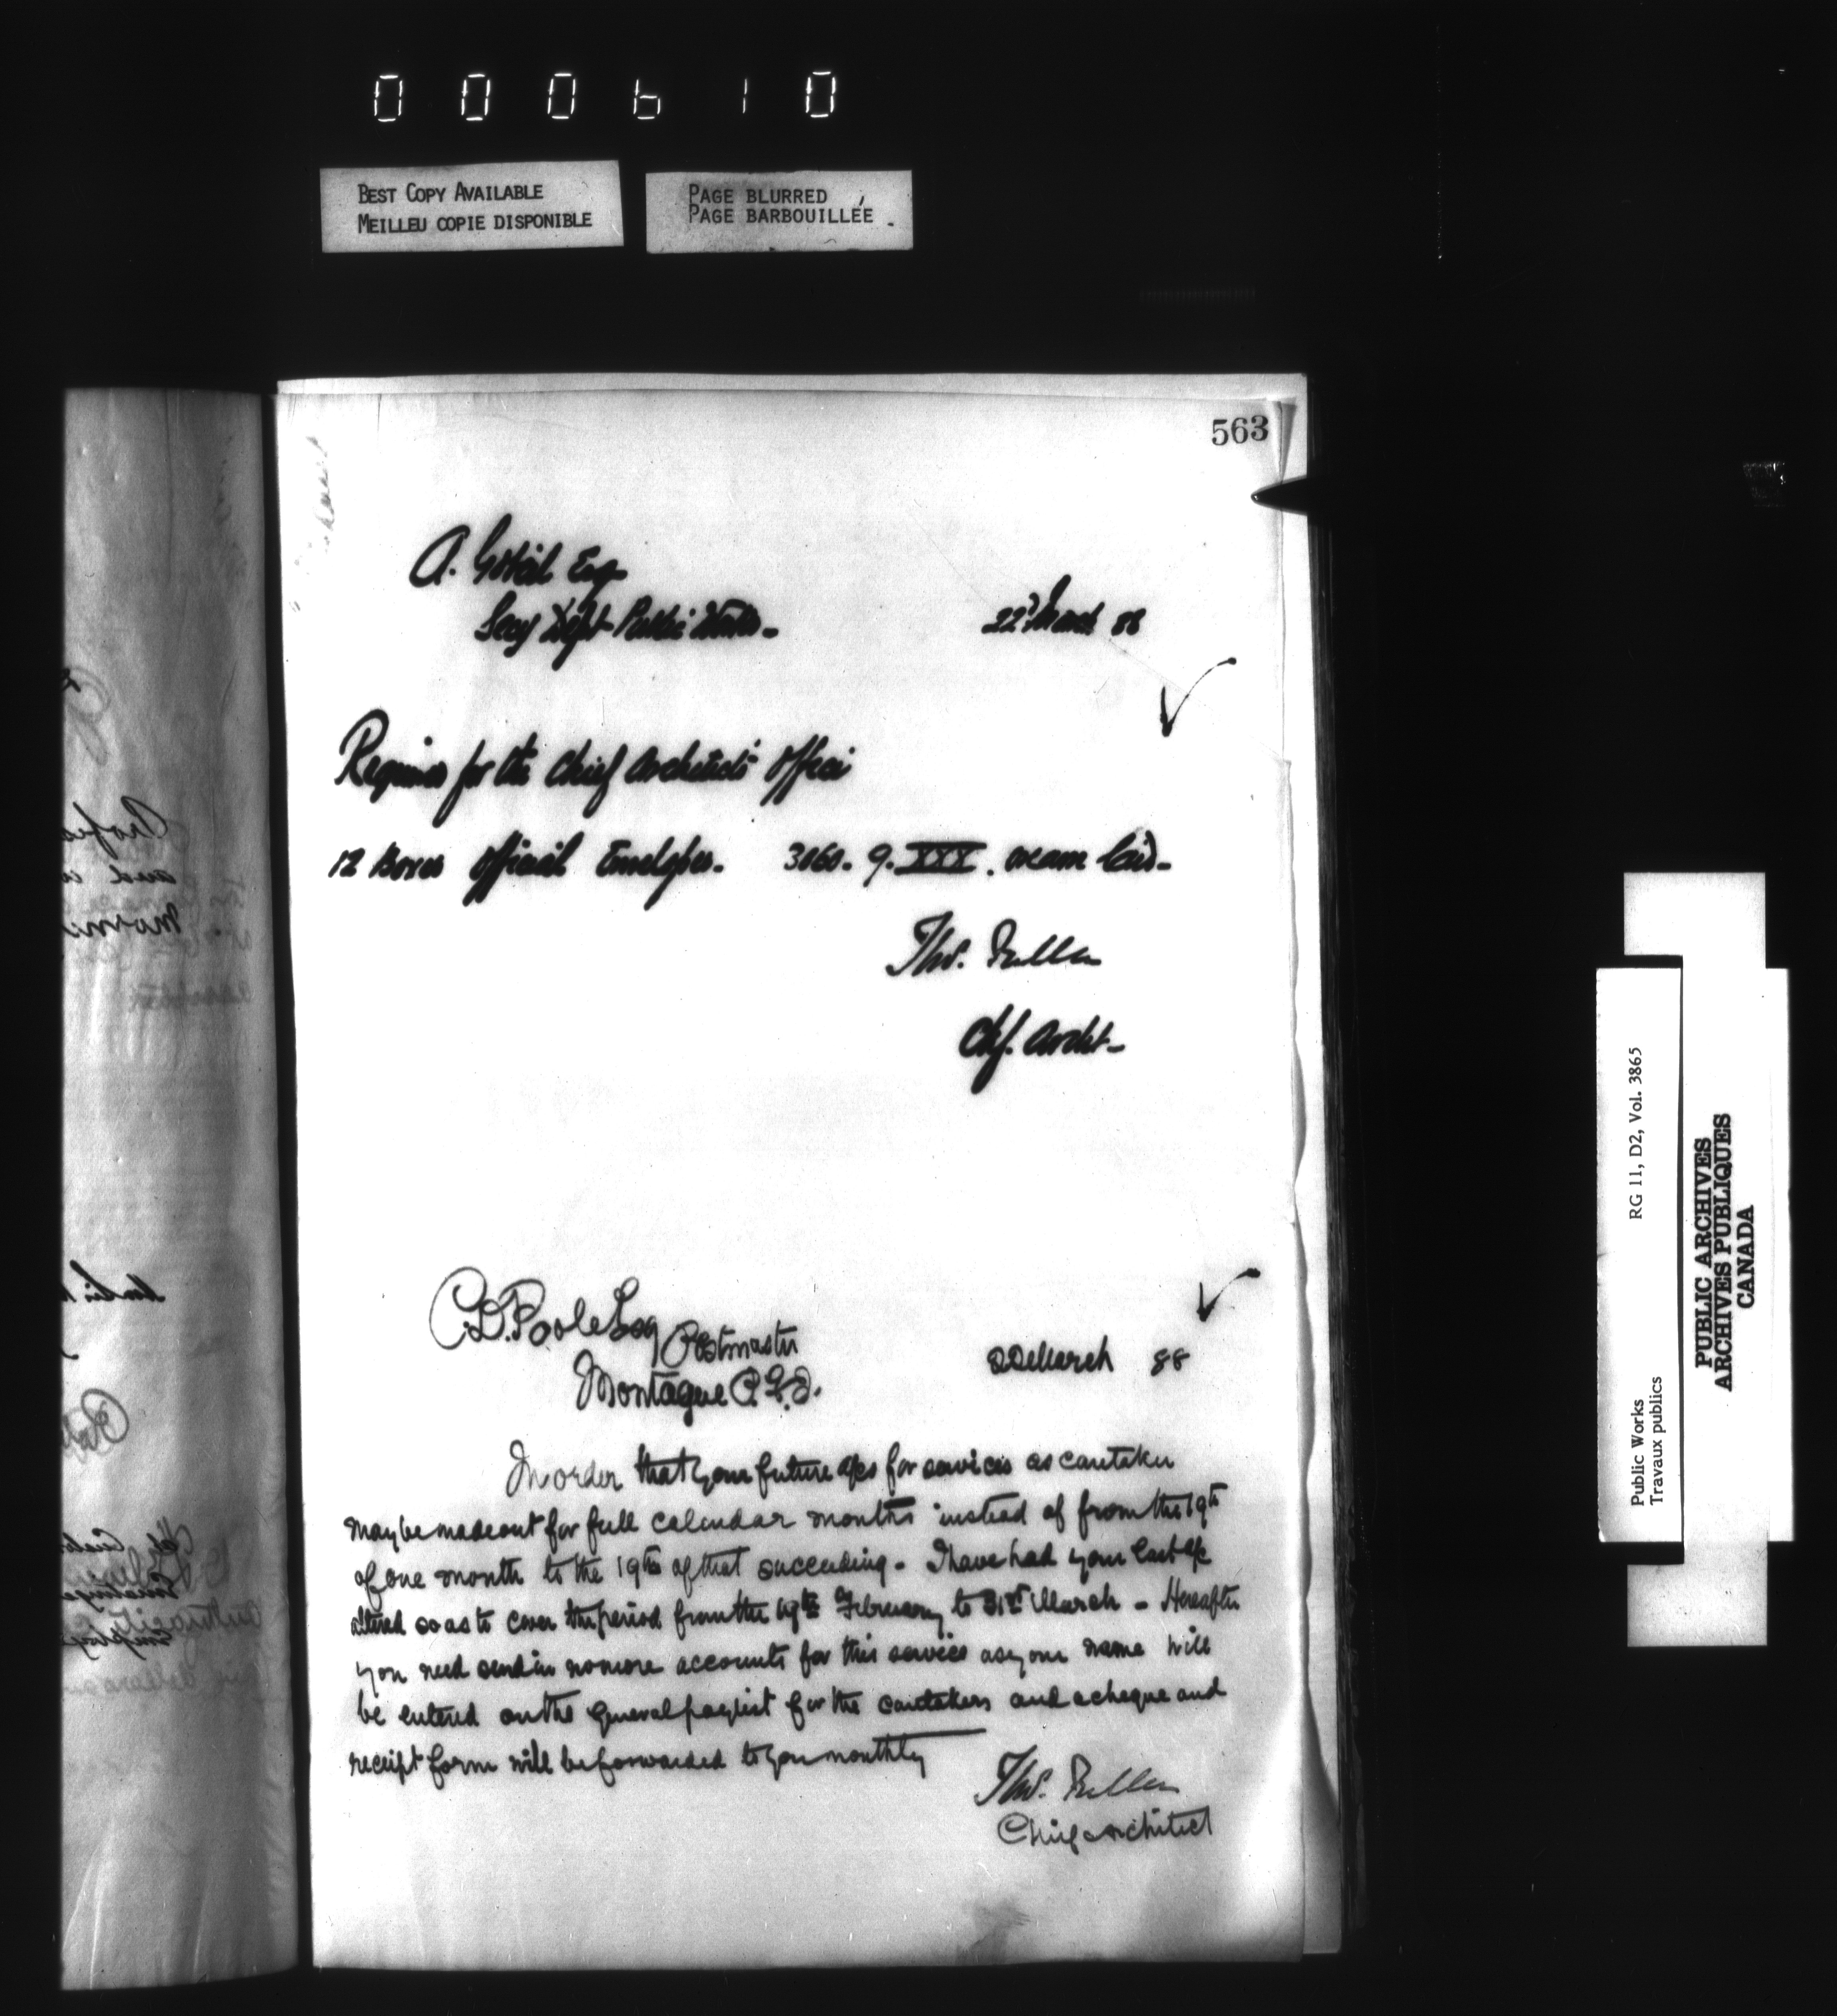 000610
BEST COPY AVAILABLE
MEILLEU COPIE DISPONIBLE
PAGE BLURRED
PAGE BARBOUILLÉE
563
A. Gobeil Esq
Secy Dept Public Works -
22d March 88
Required for the Chief Architects Office
12 Boxes Official Envelopes. 3060. 9. XXX. cream laid -
Thos. Fuller
Chf. Archt -
C.D. Poole Esq Postmaster
Montague P.E.I.
22 March 88
In order that your future a/cs for services as caretaker
may be made out for full calendar months instead of from the 19th
of one month to the 19th of that succeeding - I have had your last a/c
altered so as to cover the period from the 19th February to 31st March - Hereafter
you need send in no more accounts for this service as your name will
be entered on the general paylist for the caretakers and a cheque and
receipt form will be forwarded to you monthly
Thos. Fuller
Chief Architect
RG 11, D2, Vol. 3865
Public Works
Travaux publics
PUBLIC ARCHIVES
ARCHIVES PUBLIQUES
CANADA